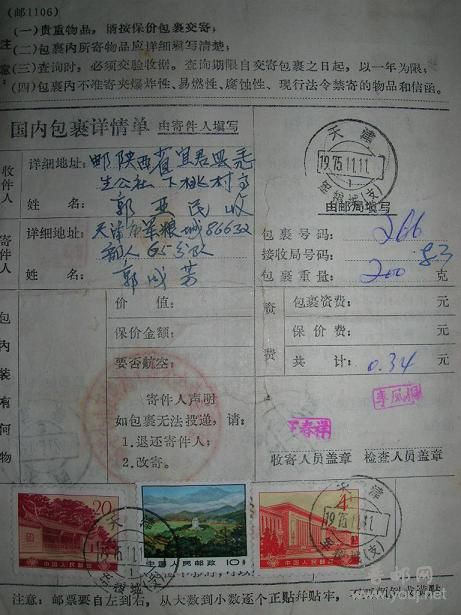 (邮1106)
(一)贵重物品,请按保价包裹交寄;
(二)包裹内所寄物品应详细填写清楚;
注意:
(三)查询时,必须交验收据。查询期限自交寄包裹之日起,以一年为限;
(四)包裹内不准寄夹爆炸性、易燃性、腐蚀性、现行法令禁寄的物品和信函。
国内包裹详情单 由寄件人填写
收件人
详细地址: 邮陕西省宜君县
生公社下桃村
姓名: 郭西民收
寄件人
详细地址: 天津市军粮城86632
部队65分队
姓名: 郭成芳
天津
1975.11.11
(支)
由邮局填写
包裹号码: 266
接收局号码:
包裹重量: 200 克
价值:
保价金额:
要否航空:
资费
包裹资费: 元
保价费: 元
共计: 0.34 元
包内装有何物
寄件人声明
如包裹无法投递,请:
1.退还寄件人;
2.改寄。
收寄人员盖章 检查人员盖章
20
中国人民邮政
中国人民邮政 10分
4
中国人民邮政
天津
1975.11.11
(支)
天津
1975.11.11
(支)
注意:邮票要自左到右,从大数到小数逐个正贴并贴牢,
www.youj.com